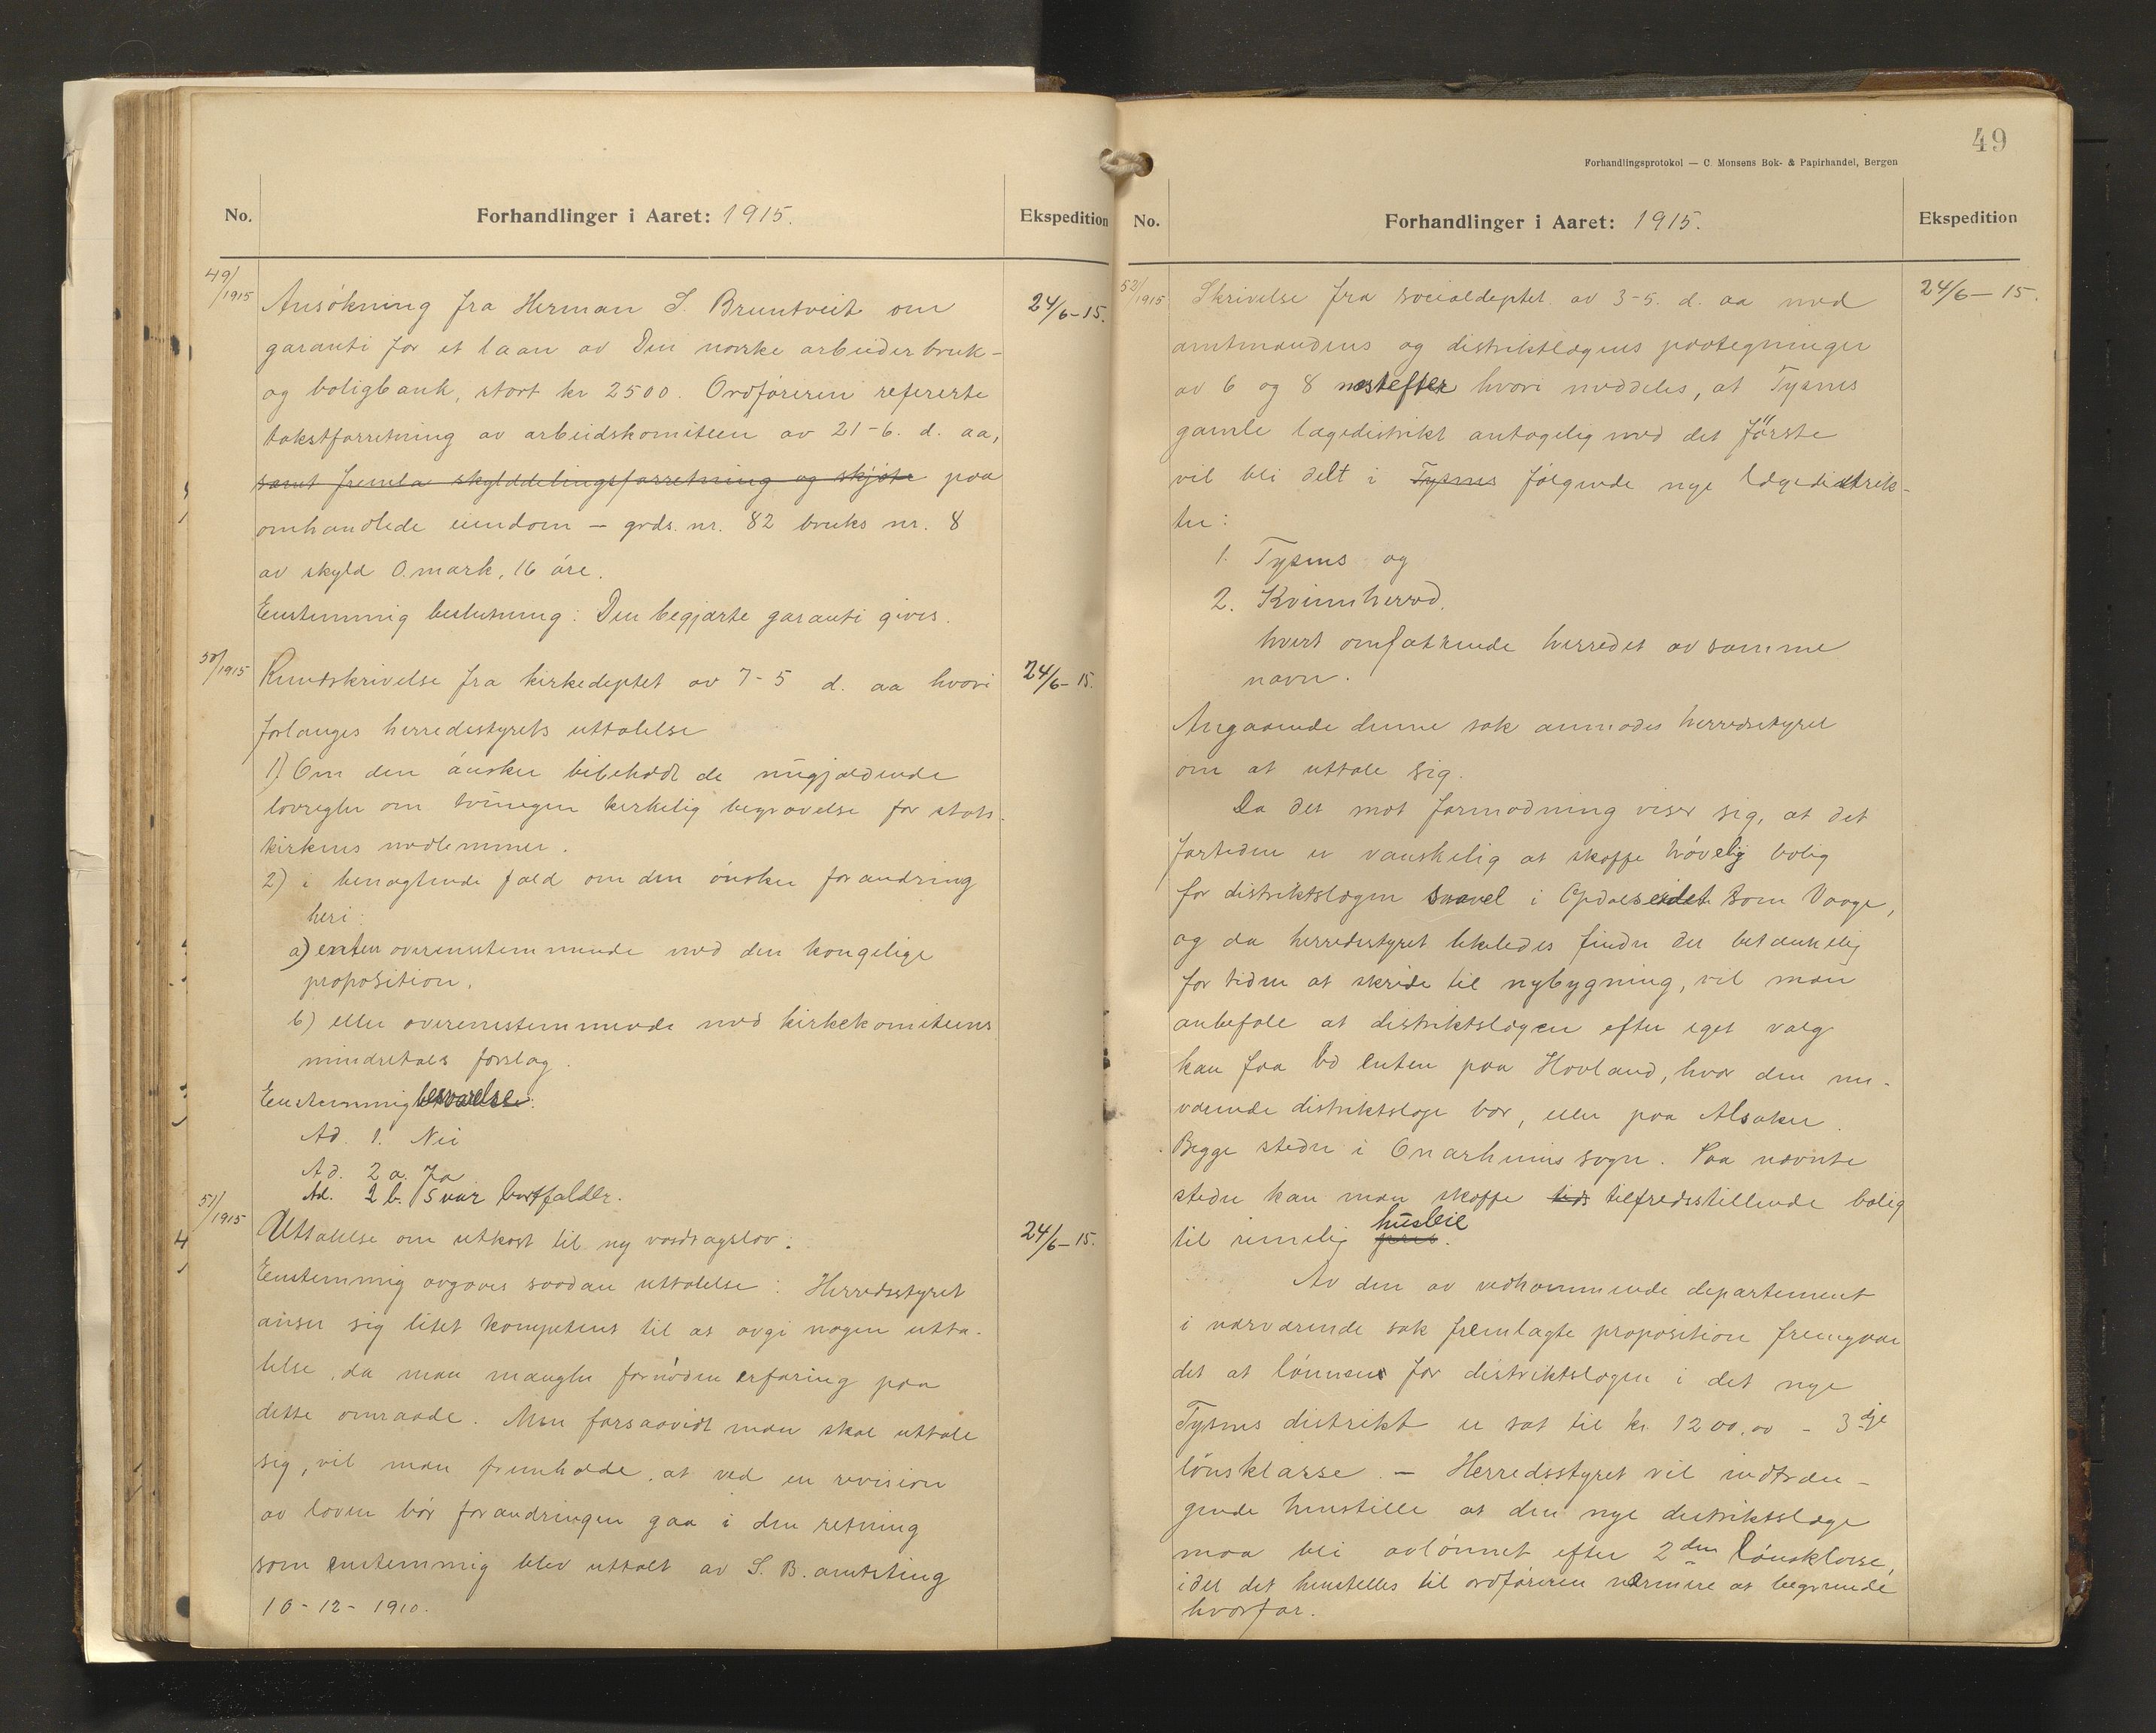 No.
Forhandlinger i Aaret: 1915.
Ekspedition
49/1915
Ansökning fra Herman S. Bruntveit om
24/6-15.
garanti for et laan av Den norske arbeiderbruk-
og boligbank, stort kr 2500. Ordföreren refererte
takstforretning av arbeidskomiteen av 21-6. d. aa,
samt fremla skylddelingsforretning og skjöte paa
omhandlede eiendom - grds. nr. 82 bruks nr. 8
av skyld 0.mark, 16 öre.
Enstemmig beslutning: Den begjærte garanti gives.
50/1915
Rundskrivelse fra kirkedeptet av 7-5 d. aa hvori
24/6-15.
forlanges herredsstyrets uttalelse
1) Om den önsker bibeholdt de nugjældende
lovregler om tvungen kirkelig begravelse for stats-
kirkens medlemmer.
2) i benægtende fald om den önsker forandring
heri:
a) enten overensstemmende med den kongelige
proposition.
b) eller overensstemmende med kirkekomiteens
mindretals forslag.
Enstemmig besvarelse:
Ad. 1. Nei
Ad. 2 a. Ja
Ad. 2 b. Svar bortfalder.
51/1915
Uttalelse om utkast til ny vasdragslov:
24/6-15.
Enstemmig avgaves saadan uttalelse: Herredsstyret
anser sig litet kompetent til at avgi nogen utta-
lelse, da man mangler fornöden erfaring paa
dette omraade. Men forsaavidt man skal uttale
sig, vil man fremholde, at ved en revision
av loven bör forandringen gaa i den retning
som enstemmig blev uttalt av S. B. amtsting
10-12-1910.
49
Forhandlingsprotokol — C. Monsens Bok- & Papirhandel, Bergen
No.
Forhandlinger i Aaret: 1915.
Ekspedition
52/1915
Skrivelse fra socialdeptet av 3-5. d. aa med
24/6-15.
amtmandens og distriktslægens paategninger
av 6 og 8 næstefter hvori meddeles, at Tysnes
gamle lægedistrikt antagelig med det förste
vil bli delt i Tysnes fölgende nye lægedistrik-
ter:
1. Tysnes og
2. Kvinnherred.
hvert omfattende herredet av samme
navn.
Angaaende denne sak anmodes herredsstyret
om at uttale sig.
Da det mot formodning viser sig, at det
fortiden er vanskelig at skaffe hövelig bolig
for distriktslægen saavel i Opdalseidet som Vaage,
og da herredsstyret likeledes finder det betænkelig
for tiden at skride til nybygning, vil man
anbefale at distriktslægen efter eget valg
kan faa bo enten paa Hovland, hvor den nu-
værende distriktslæge bor, eller paa Alsaker.
Begge steder i Onarheims sogn. Paa nævnte
steder kan man skaffe tids tilfredsstillende bolig
til rimelig pris. husleie
Av den av vedkommende departement
i nærværende sak fremlagte proposition fremgaar
det at lönnen for distriktslægen i det nye
Tysnes distrikt er sat til kr. 1200.00 - 3dje
lönsklasse. - Herredsstyret vil indtræn-
gende henstille at den nye distriktslæge
maa bli avlönnet efter 2den lönsklasse,
idet det henstilles til ordföreren nærmere at begrunde
hvorfor.